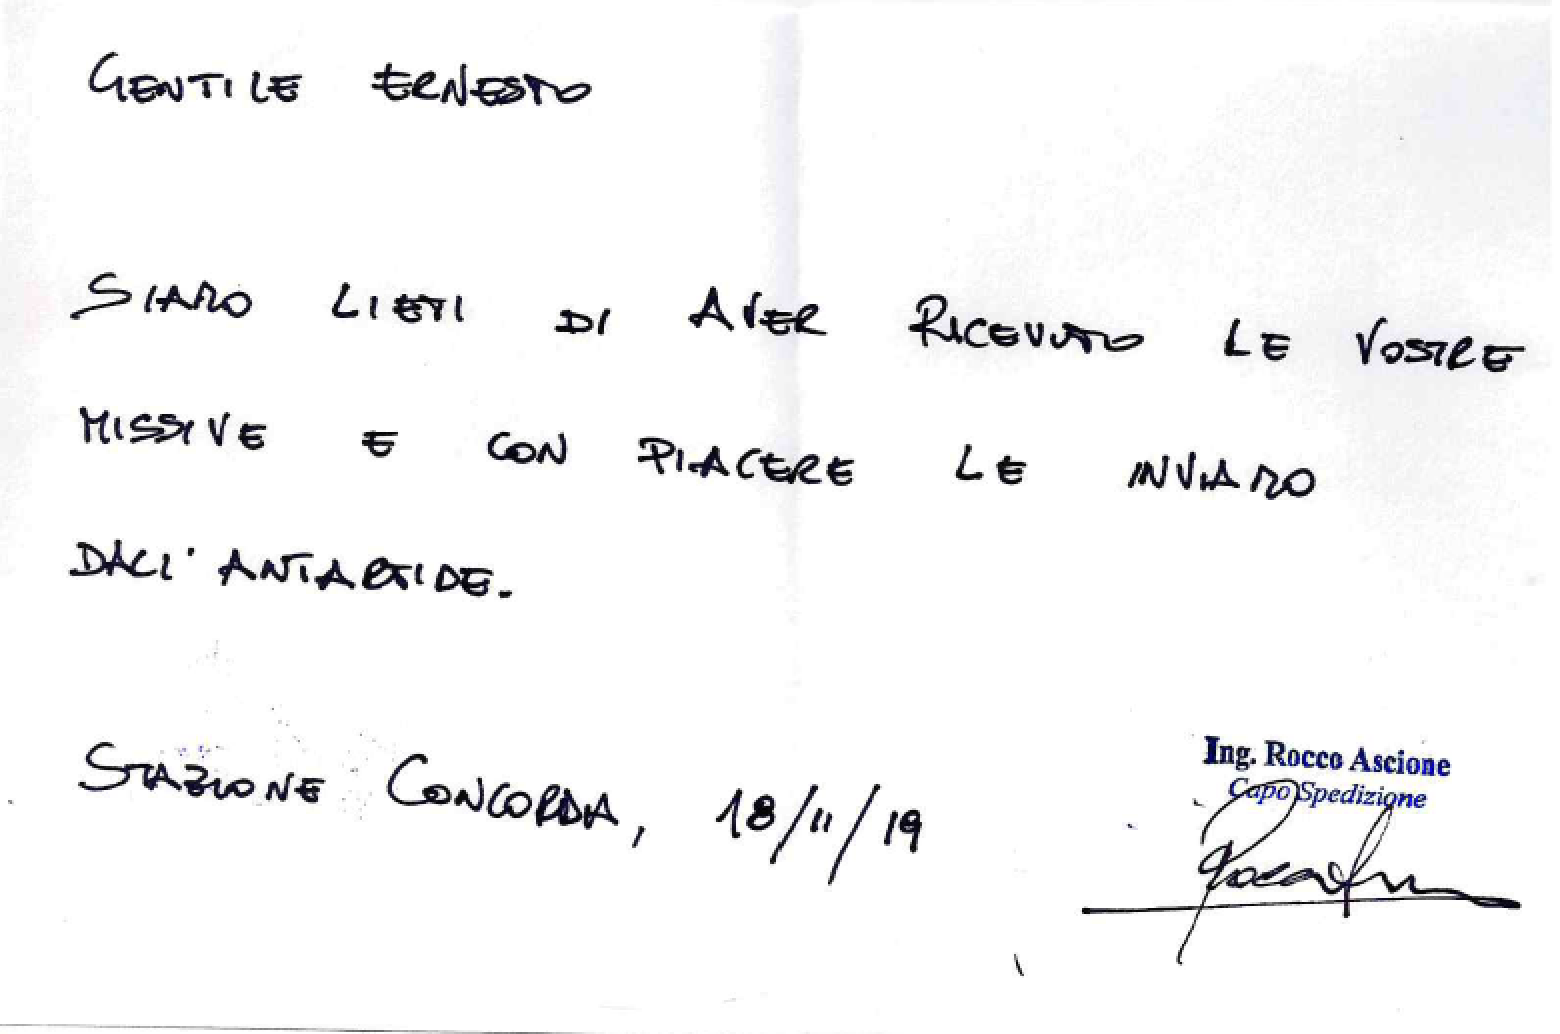 GENTILE ERNESTO
SIAMO LIETI DI AVER RICEVUTO LE VOSTRE
MISSIVE E CON PIACERE LE INVIAMO
DALL'ANTARTIDE.
STAZIONE CONCORDIA, 18/11/19
Ing. Rocco Ascione
Capo Spedizione